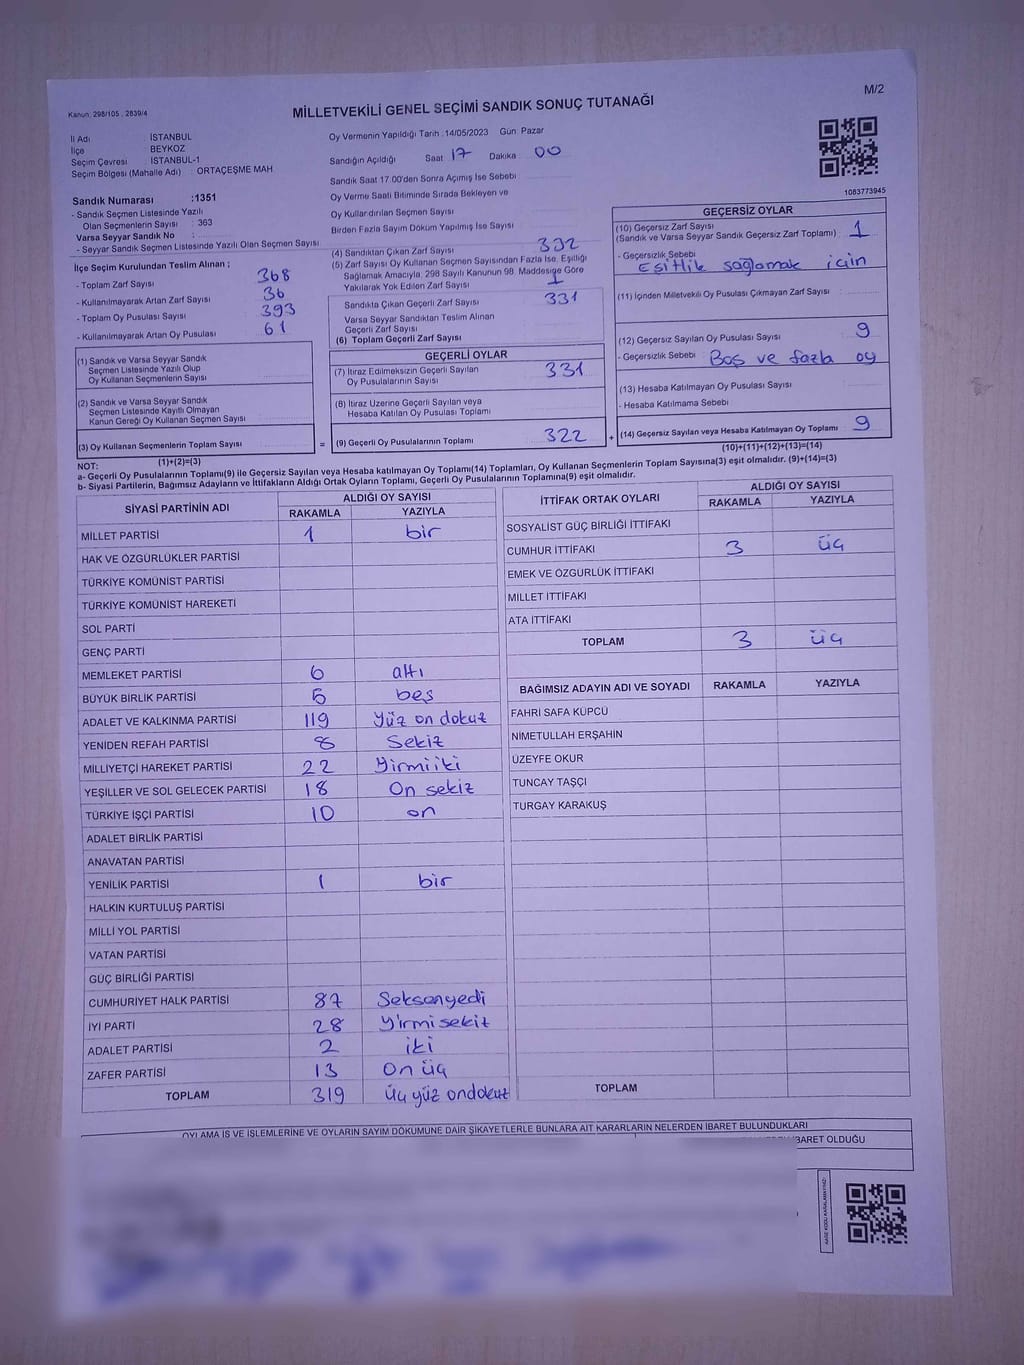 M/2
Kanun: 298/105 , 2839/4
MİLLETVEKİLİ GENEL SEÇİMİ SANDIK SONUÇ TUTANAĞI
İl Adı : İSTANBUL
İlçe : BEYKOZ
Seçim Çevresi : İSTANBUL-1
Seçim Bölgesi (Mahalle Adı) : ORTAÇEŞME MAH
Sandık Numarası :1351
- Sandık Seçmen Listesinde Yazılı
Olan Seçmenlerin Sayısı : 363
Varsa Seyyar Sandık No :
- Seyyar Sandık Seçmen Listesinde Yazılı Olan Seçmen Sayısı
İlçe Seçim Kurulundan Teslim Alınan ;
- Toplam Zarf Sayısı 368
- Kullanılmayarak Artan Zarf Sayısı 36
- Toplam Oy Pusulası Sayısı 393
- Kullanılmayarak Artan Oy Pusulası 61
(1) Sandık ve Varsa Seyyar Sandık
Seçmen Listesinde Yazılı Olup
Oy Kullanan Seçmenlerin Sayısı
(2) Sandık ve Varsa Seyyar Sandık
Seçmen Listesinde Kayıtlı Olmayan
Kanun Gereği Oy Kullanan Seçmen Sayısı
(3) Oy Kullanan Seçmenlerin Toplam Sayısı
(1)+(2)=(3)
Oy Vermenin Yapıldığı Tarih :14/05/2023 Gün: Pazar
Sandığın Açıldığı Saat 17 Dakika 00
Sandık Saat 17.00'den Sonra Açılmış İse Sebebi
Oy Verme Saati Bitiminde Sırada Bekleyen ve
Oy Kullandırılan Seçmen Sayısı
Birden Fazla Sayım Döküm Yapılmış İse Sayısı
(4) Sandıktan Çıkan Zarf Sayısı 332
(5) Zarf Sayısı Oy Kullanan Seçmen Sayısından Fazla İse, Eşitliği
Sağlamak Amacıyla, 298 Sayılı Kanunun 98. Maddesine Göre
Yakılarak Yok Edilen Zarf Sayısı 1
Sandıkta Çıkan Geçerli Zarf Sayısı 331
Varsa Seyyar Sandıktan Teslim Alınan
Geçerli Zarf Sayısı
(6) Toplam Geçerli Zarf Sayısı
GEÇERLİ OYLAR
(7) İtiraz Edilmeksizin Geçerli Sayılan
Oy Pusulalarının Sayısı 331
(8) İtiraz Üzerine Geçerli Sayılan veya
Hesaba Katılan Oy Pusulası Toplamı
= (9) Geçerli Oy Pusulalarının Toplamı 322 +
1083773945
GEÇERSİZ OYLAR
(10) Geçersiz Zarf Sayısı
(Sandık ve Varsa Seyyar Sandık Geçersiz Zarf Toplamı) 1
- Geçersizlik Sebebi
Eşitlik sağlamak için
(11) İçinden Milletvekili Oy Pusulası Çıkmayan Zarf Sayısı
(12) Geçersiz Sayılan Oy Pusulası Sayısı 9
- Geçersizlik Sebebi Boş ve fazla oy
(13) Hesaba Katılmayan Oy Pusulası Sayısı
- Hesaba Katılmama Sebebi
(14) Geçersiz Sayılan veya Hesaba Katılmayan Oy Toplamı 9
(10)+(11)+(12)+(13)=(14)
NOT:
a- Geçerli Oy Pusulalarının Toplamı(9) ile Geçersiz Sayılan veya Hesaba katılmayan Oy Toplamı(14) Toplamları, Oy Kullanan Seçmenlerin Toplam Sayısına(3) eşit olmalıdır. (9)+(14)=(3)
b- Siyasi Partilerin, Bağımsız Adayların ve İttifakların Aldığı Ortak Oyların Toplamı, Geçerli Oy Pusulalarının Toplamına(9) eşit olmalıdır.
SİYASİ PARTİNİN ADI ALDIĞI OY SAYISI
RAKAMLA YAZIYLA
MİLLET PARTİSİ 1 bir
HAK VE ÖZGÜRLÜKLER PARTİSİ
TÜRKİYE KOMÜNİST PARTİSİ
TÜRKİYE KOMÜNİST HAREKETİ
SOL PARTİ
GENÇ PARTİ
MEMLEKET PARTİSİ 6 altı
BÜYÜK BİRLİK PARTİSİ 5 beş
ADALET VE KALKINMA PARTİSİ 119 Yüz on dokuz
YENİDEN REFAH PARTİSİ 8 Sekiz
MİLLİYETÇİ HAREKET PARTİSİ 22 Yirmi iki
YEŞİLLER VE SOL GELECEK PARTİSİ 18 On sekiz
TÜRKİYE İŞÇİ PARTİSİ 10 on
ADALET BİRLİK PARTİSİ
ANAVATAN PARTİSİ
YENİLİK PARTİSİ 1 bir
HALKIN KURTULUŞ PARTİSİ
MİLLİ YOL PARTİSİ
VATAN PARTİSİ
GÜÇ BİRLİĞİ PARTİSİ
CUMHURİYET HALK PARTİSİ 87 Seksenyedi
İYİ PARTİ 28 Yirmi sekiz
ADALET PARTİSİ 2 iki
ZAFER PARTİSİ 13 On üç
TOPLAM 319 Üç yüz ondokuz
İTTİFAK ORTAK OYLARI ALDIĞI OY SAYISI
RAKAMLA YAZIYLA
SOSYALİST GÜÇ BİRLİĞİ İTTİFAKI
CUMHUR İTTİFAKI 3 üç
EMEK VE ÖZGÜRLÜK İTTİFAKI
MİLLET İTTİFAKI
ATA İTTİFAKI
TOPLAM 3 üç
BAĞIMSIZ ADAYIN ADI VE SOYADI RAKAMLA YAZIYLA
FAHRİ SAFA KÜPCÜ
NİMETULLAH ERŞAHİN
ÜZEYFE OKUR
TUNCAY TAŞÇI
TURGAY KARAKUŞ
TOPLAM
OYLAMA İŞ VE İŞLEMLERİNE VE OYLARIN SAYIM DÖKÜMÜNE DAİR ŞİKAYETLERLE BUNLARA AİT KARARLARIN NELERDEN İBARET BULUNDUKLARI
İBARET OLDUĞU